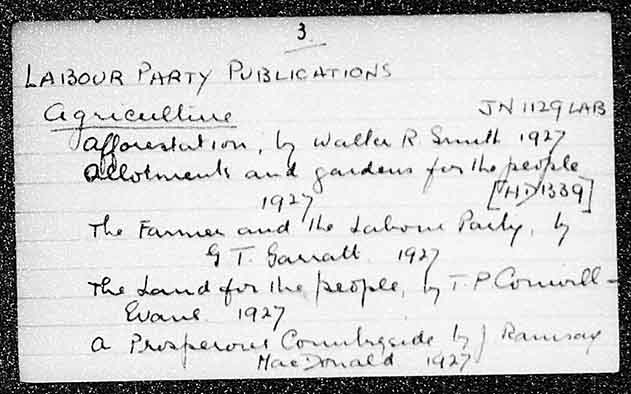 3
LABOUR PARTY PUBLICATIONS
Agriculture JN 1129 LAB
Afforestation, by Walter R Smith 1927
Allotments and gardens for the people
1927 [HD1339]
The Farmer and the Labour Party, by
G T. Garratt 1927
The Land for the people, by T. P Conwill-
Evans 1927
A Prosperous Countryside by J Ramsay
MacDonald 1927